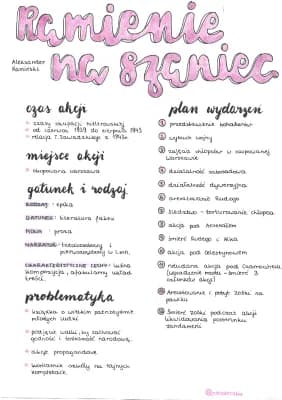 Kamienie
na szaniec
Aleksander
Kamiński
czas akcji
czasy okupacji hitlerowskiej
od czerwca 1939 do sierpnia 1943
relacja T. Zawadzkiego z 1943r.
miejsce akcji
okupowana warszawa
gatunek i rodzaj
RODZAJ: epika
GATUNEK: literatura faktu
MOWA: proza
NARRATOR: trzecioosobowy i
pierwszoosobowy w l.mn.
CHARAKTERYSTYCZNE CECHY: luźna
kompozycja, afabularny układ
treści.
problematyka
książka o wielkim patriotyzmie
młodych ludzi
podjęcie walki, by zachować
godność i tożsamość narodową.
akcje propagandowe
kontynuowanie nauki na tajnych
kompletach.
plan wydarzeń
1 przedstawienie bohaterów
2 wybuch wojny
3 zajęcia chłopców w okupowanej
Warszawie
4 działalność sabotażowa
5 działalność dywersyjna
6 aresztowanie Rudego
7 śledztwo - torturowanie chłopca
8 akcja pod Arsenałem
9 śmierć Rudego i Alka
10 akcja pod Celestynowem
11 nieudana akcja pod Czarnocinem
(wysadzenie mostu - śmierć 3
członków akcji)
12 Aresztowanie i pobyt Zośki na
pawiaku
13 Śmierć Zośki podczas akcji
likwidowania posterunku
żandarmerii